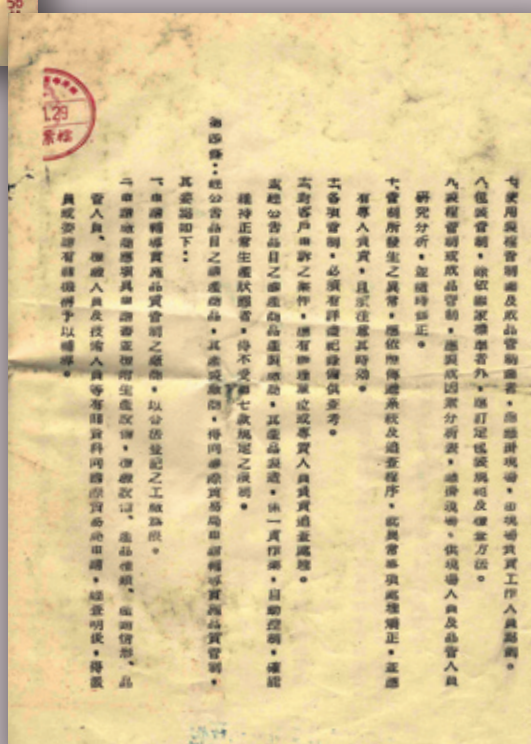 七、使用製程管制圖及成品管制圖者，應懸掛現場，由現場負責工作人員點劃。
八、包裝管制，除依國家標準者外，應訂定包裝規範及檢查方法。
九、製程管制或成品管制，應製成因素分析表，懸掛現場，供現場人員及品管人員
研究分析，並隨時修正。
十、管制所發生之異常，應依照傳遞系統及追查程序，就異常事項處理矯正，並應
有專人負責，且須注意其時效。
各項管制，必須有詳盡記錄備供查考。
對客戶申訴之案件，應有辦理單位或專責人員負責追查處理。
經公告品目之礦產商品產製廠商，其產品製造，係一貫作業，自動控制，確能
維持正常生產狀態者，得不受第七款規定之限制。
第四條：經公告品目之礦產商品，其產製廠商，得向國際貿易局申請輔導實施品質管制，
其要點如下：
一、申請輔導實施品質管制之廠商，以合法登記之工廠為限。
二、申請廠商應填具申請書並檢附生產設備、檢驗設備、產品種類、產銷情形、品
管人員、檢驗人員及技術人員等有關資料向國際貿易局申請，經查明後，得派
員或委請有關機構予以輔導。
1.29